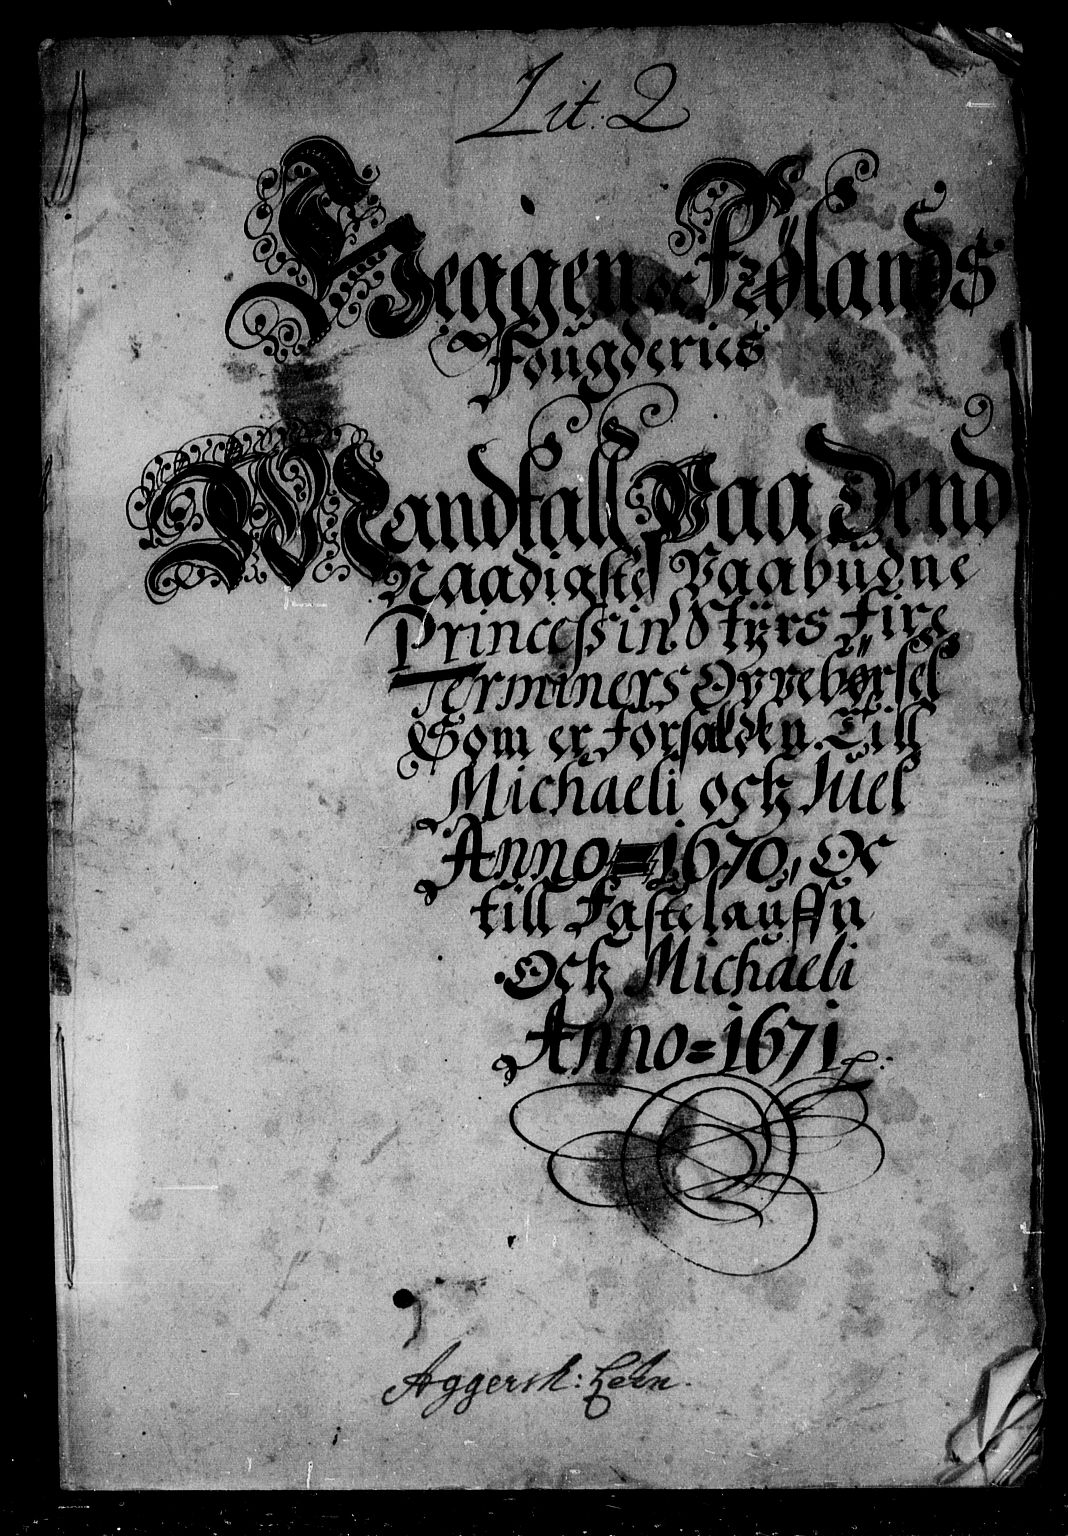 Lit: Q
Heggen oc Frølands
Fougderies
Mandtall Paa Dend
Naadigste Paabüdne
Princessin Stÿrs fire
Terminers Oppebørsel
Som er forfalden. Till
Michaeli och Juel
Anno = 1670, Oc
till Fastelauffn
Och Michaeli
Anno = 1671
Aggersh: Lehn.